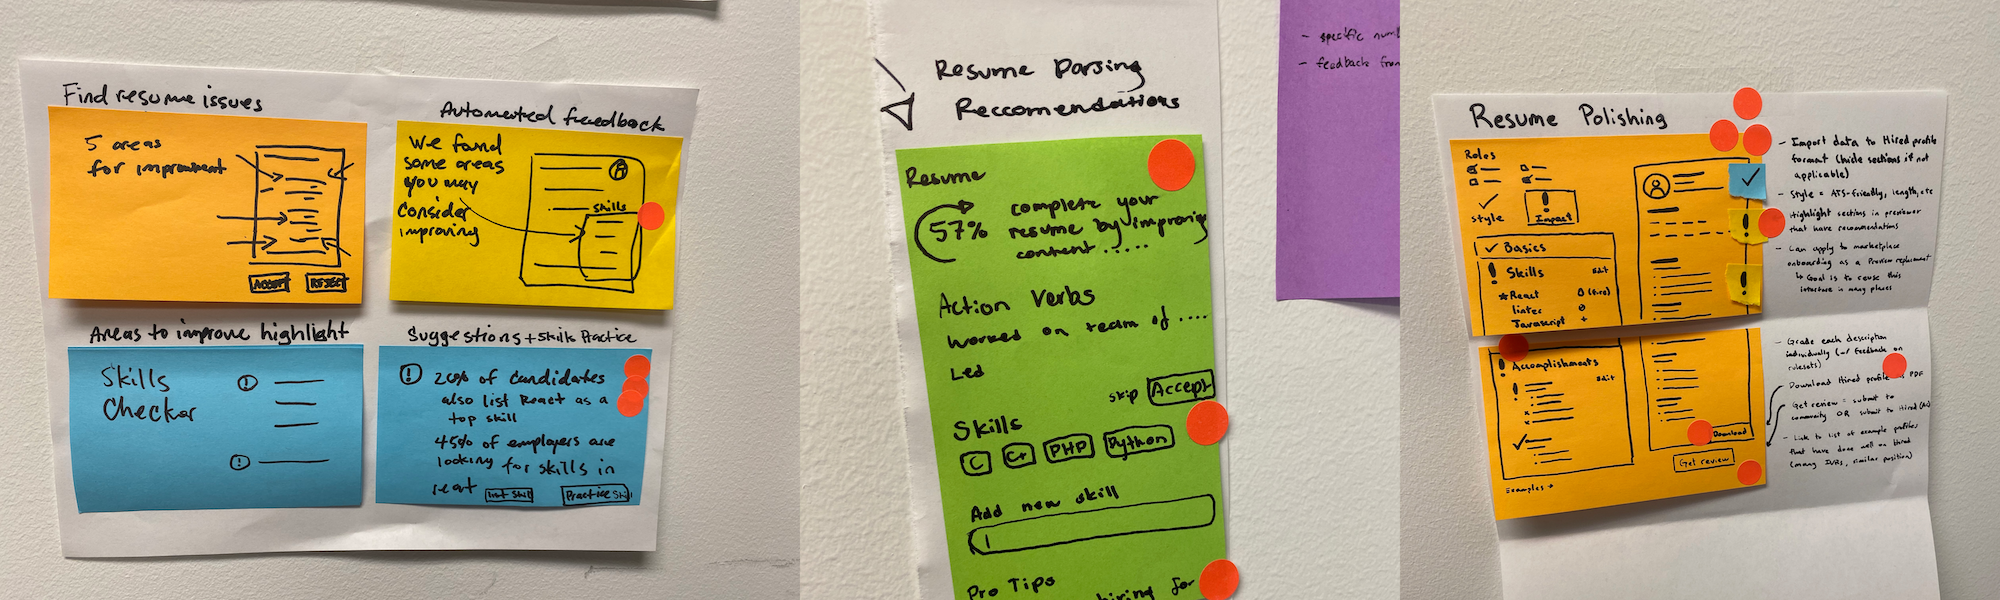 Find resume issues
5 areas
for improvement
ACCEPT
REJECT
Automated feedback
We found
some areas
you may
consider
improving
Skills
Areas to improve highlight
Skills
Checker
Suggestions + Skills Practice
20% of candidates
also list React as a
top skill
45% of employers are
looking for skills in
react
list skill
Practice Skill
Resume Parsing
Reccomendations
Resume
57%
complete your
resume by improving
content .....
Action Verbs
Worked on team of ....
Led
skip
Accept
Skills
C
C+
PHP
Python
Add new skill
Pro Tips
hiring for
- specific num
- feedback from
Resume Polishing
Roles
style
Impact
Basics
Skills
Edit
React
linter
Javascript +
- Import data to Hired profile
format (hide sections if not
applicable)
- Style = ATS-friendly, length, etc
Highlight sections in previewer
that have recommendations
- Can apply to marketplace
onboarding as a Preview replacement
↳ Goal is to reuse this
interface in many places
Accomplishments
Edit
Download
Get review
Examples →
- Grade each description
individually (w/ feedback on
rulesets)
- Download Hired profile as PDF
- Get review = submit to
community OR submit to Hired
- Link to list of example profiles
that have done well on Hired
(many IVRs, similar position)